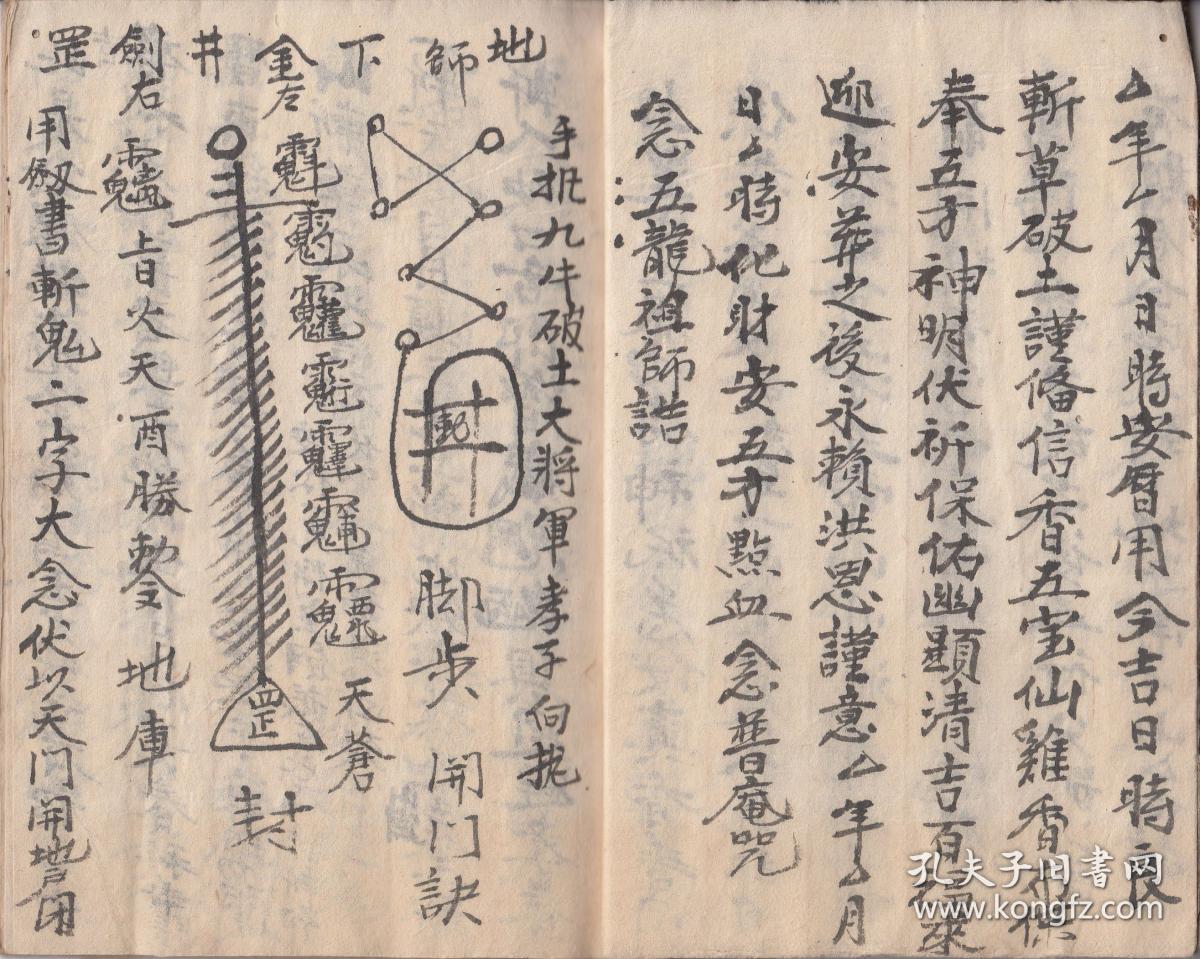 厶年厶月日時安厝用今吉日時良
斬草破土謹俻信香五宝仙雞香
奉五方神明伏祈保佑幽顯清吉百福來
迎安葬之後永賴洪恩謹意厶年厶月
日厶時化財安五方點血念普庵咒
念五龍祖師誥
手把九牛破土大將軍孝子向
地師下金井
斬
脚步 開门訣
左
天蒼
罡
封
劍右
上日火天酉勝勅令 地庫
罡 用劔書斬鬼二字大念伏以天门開地户闭
孔夫子旧书网
www.kongfz.com